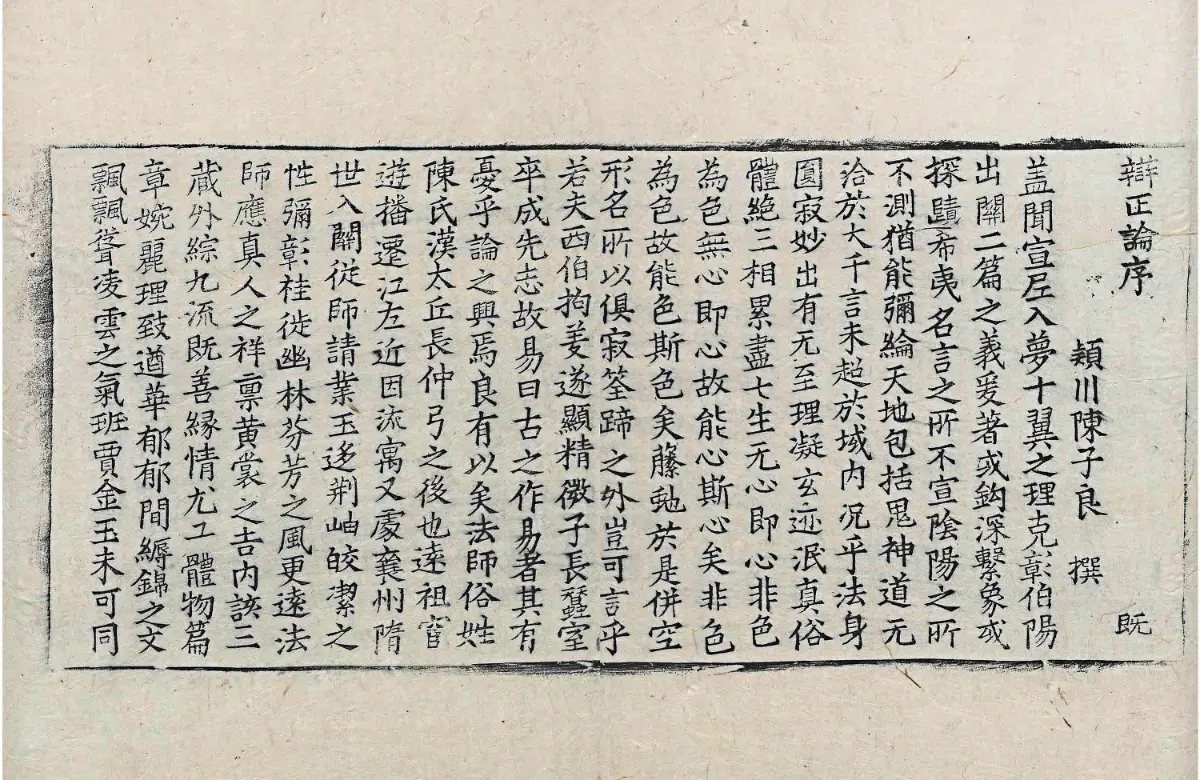 辯正論序
穎川陳子良 撰 既
盖聞宣尼入夢十翼之理克彰伯陽
出關二篇之義爰著或鈎深繫象或
探賾希夷名言之所不宣陰陽之所
不測猶能彌綸天地包括鬼神道无
洽於大千言未超於域内况乎法身
圓寂妙出有无至理凝玄迹泯真俗
體絶三相累盡七生无心即心非色
為色無心即心故能心斯心矣非色
為色故能色斯色矣藤虵於是併空
形名所以俱寂筌蹄之外豈可言乎
若夫西伯拘羑遂顯精微子長蠶室
卒成先志故易曰古之作易者其有
憂乎論之興焉良有以矣法師俗姓
陳氏漢太丘長仲弓之後也遠祖官
遊播遷江左近因流寓又處襄州隋
世入關従師請業玉迻荆岫皎潔之
性彌彰桂徙幽林芬芳之風更遠法
師應真人之祥禀黄裳之吉内該三
蔵外綜九流既善縁情尤工體物篇
章婉麗理致遒華郁郁間縟錦之文
飄飄聳凌雲之氣班賈金玉未可同